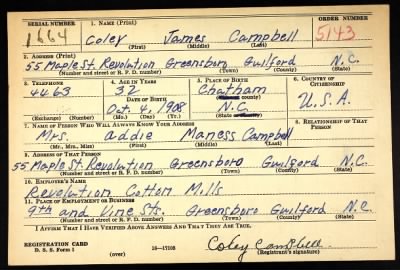 SERIAL NUMBER 1. NAME (Print) ORDER NUMBER
1664 Coley James Campbell 5143
(First) (Middle) (Last)
2. ADDRESS (Print)
55 Maple St. Revolution Greensboro Guilford N.C.
(Number and street or R. F. D. number) (Town) (County) (State)
3. TELEPHONE 4. AGE IN YEARS 5. PLACE OF BIRTH 6. COUNTRY OF CITIZENSHIP
4463 32 Chatham U.S.A.
DATE OF BIRTH (Town or county)
Oct. 4, 1908 N.C.
(Exchange) (Number) (Mo.) (Day) (Yr.) (State or country)
7. NAME OF PERSON WHO WILL ALWAYS KNOW YOUR ADDRESS 8. RELATIONSHIP OF THAT PERSON
Mrs. Addie Maness Campbell
(Mr., Mrs., Miss) (First) (Middle) (Last)
9. ADDRESS OF THAT PERSON
55 Maple St. Revolution Greensboro Guilford N.C.
(Number and street or R. F. D. number) (Town) (County) (State)
10. EMPLOYER'S NAME
Revolution Cotton Mills
11. PLACE OF EMPLOYMENT OR BUSINESS
9th and Vine Sts. Greensboro Guilford N.C.
(Number and street or R. F. D. number) (Town) (County) (State)
I AFFIRM THAT I HAVE VERIFIED ABOVE ANSWERS AND THAT THEY ARE TRUE.
REGISTRATION CARD
D. S. S. Form 1 16—17105 Coley Campbell
(over) (Registrant's signature)